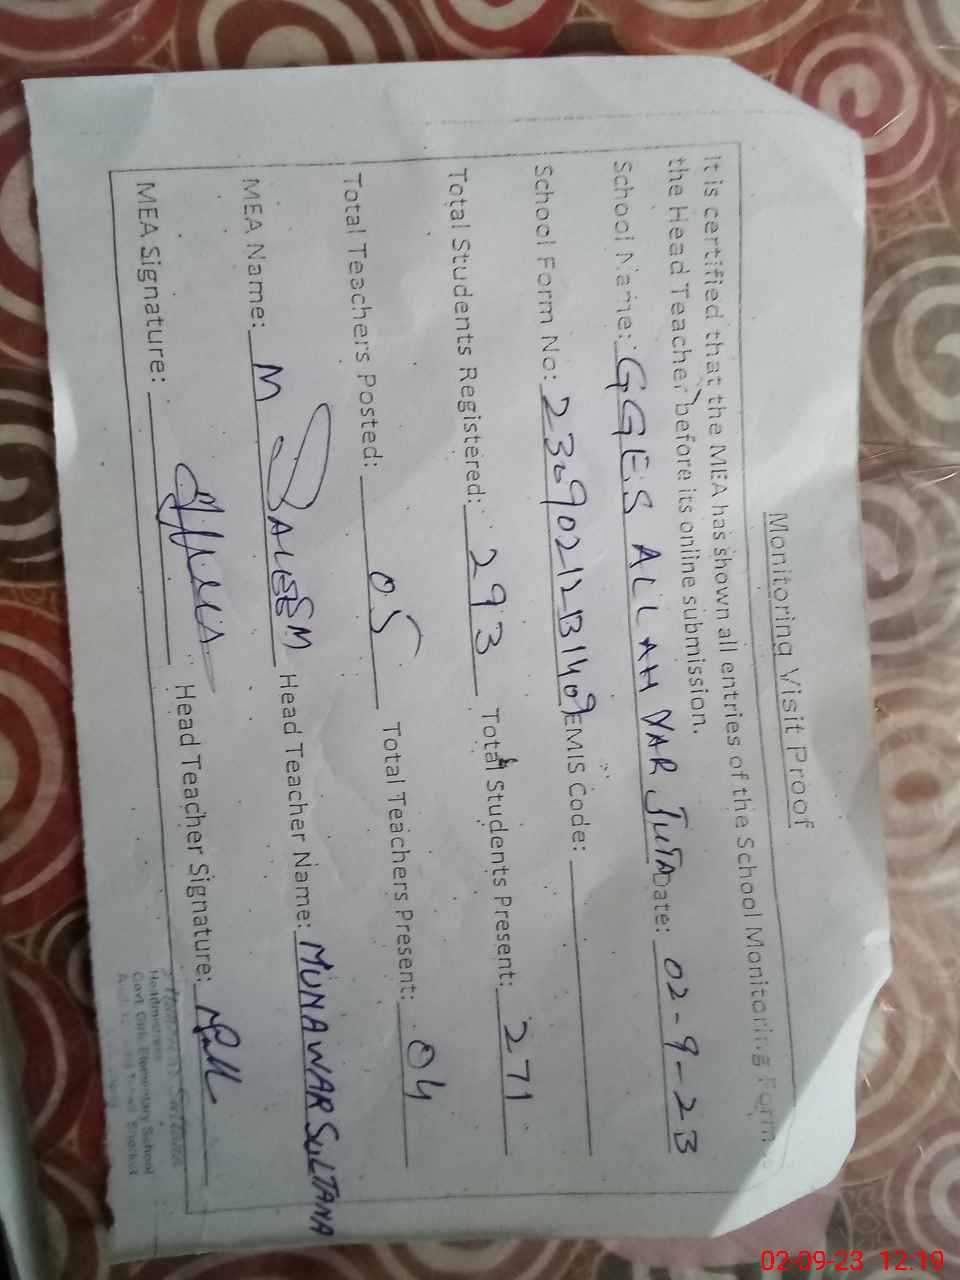 Monitoring Visit Proof
It is certified that the MEA has shown all entries of the School Monitoring Form
the Head Teacher before its online submission.
School Name: GGES ALLAH YAR JUTA Date: 02-9-23
School Form No: EMIS Code:
Total Students Registered: 293 Total Students Present: 271
Total Teachers Posted: 05 Total Teachers Present: 04
MEA Name: M SALEEM Head Teacher Name: MUNAWAR SULTANA
MEA Signature: Head Teacher Signature:
Headmistress
Govt. Girls Elementary School
02-09-23 12:19